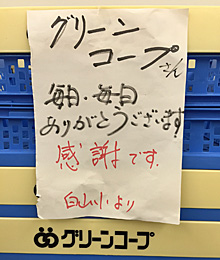 グリーン
コープさん
毎日・毎日
ありがとうございます
感謝です。
白山小より
グリーンコープ